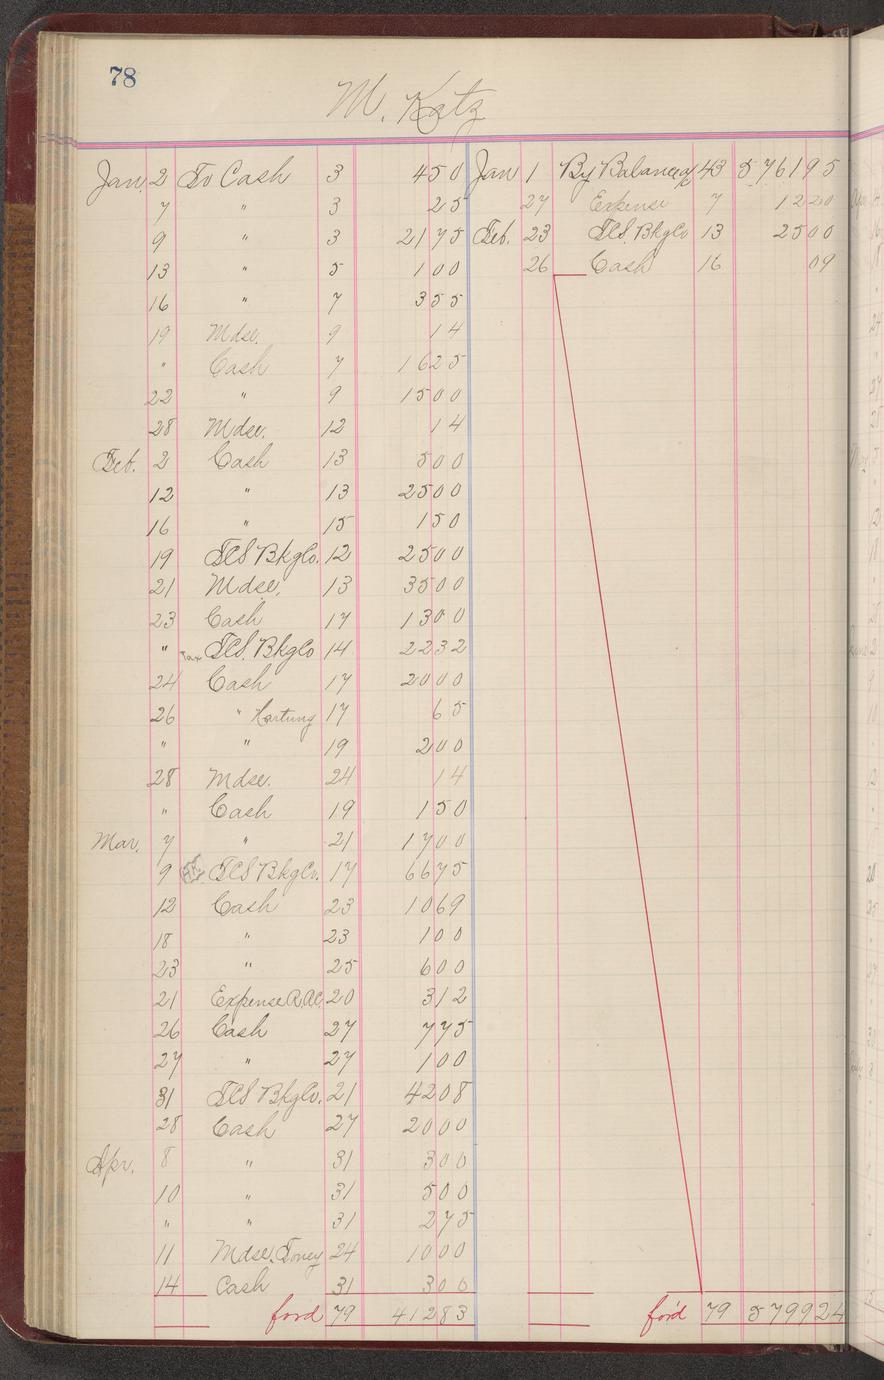 78
M. Katz
Jan. 2 To Cash 3 4 50
7 " 3 25
9 " 3 21 75
13 " 5 1 00
16 " 7 3 55
19 Mdse. 9 14
" Cash 7 16 25
22 " 9 15 00
28 Mdse. 12 14
Feb. 2 Cash 13 5 00
12 " 13 25 00
16 " 15 1 50
19 T.C.S. Bkg Co. 12 25 00
21 Mdse. 13 35 00
23 Cash 17 13 00
" Tax T.C.S. Bkg Co 14 22 32
24 Cash 17 20 00
26 " Hartung 17 65
" " 19 2 00
28 Mdse. 24 14
" Cash 19 1 50
Mar. 7 " 21 17 00
9 T.C.S Bkg Co. 17 66 75
12 Cash 23 10 69
18 " 23 1 00
23 " 25 6 00
21 Expense R.R.C. 20 3 12
26 Cash 27 7 75
27 " 27 1 00
31 T.C.S Bkg Co. 21 42 08
28 Cash 27 20 00
Apr. 8 " 31 3 00
10 " 31 5 00
" " 31 2 75
11 Mdse. Toney 24 10 00
14 Cash 31 3 00
for'd 79 412 83
Jan 1 By Balance a/c 43 5761 95
27 Expense 7 12 20
Feb. 23 T.C.S. Bkg Co 13 25 00
26 Cash 16 09
for'd 79 5799 24